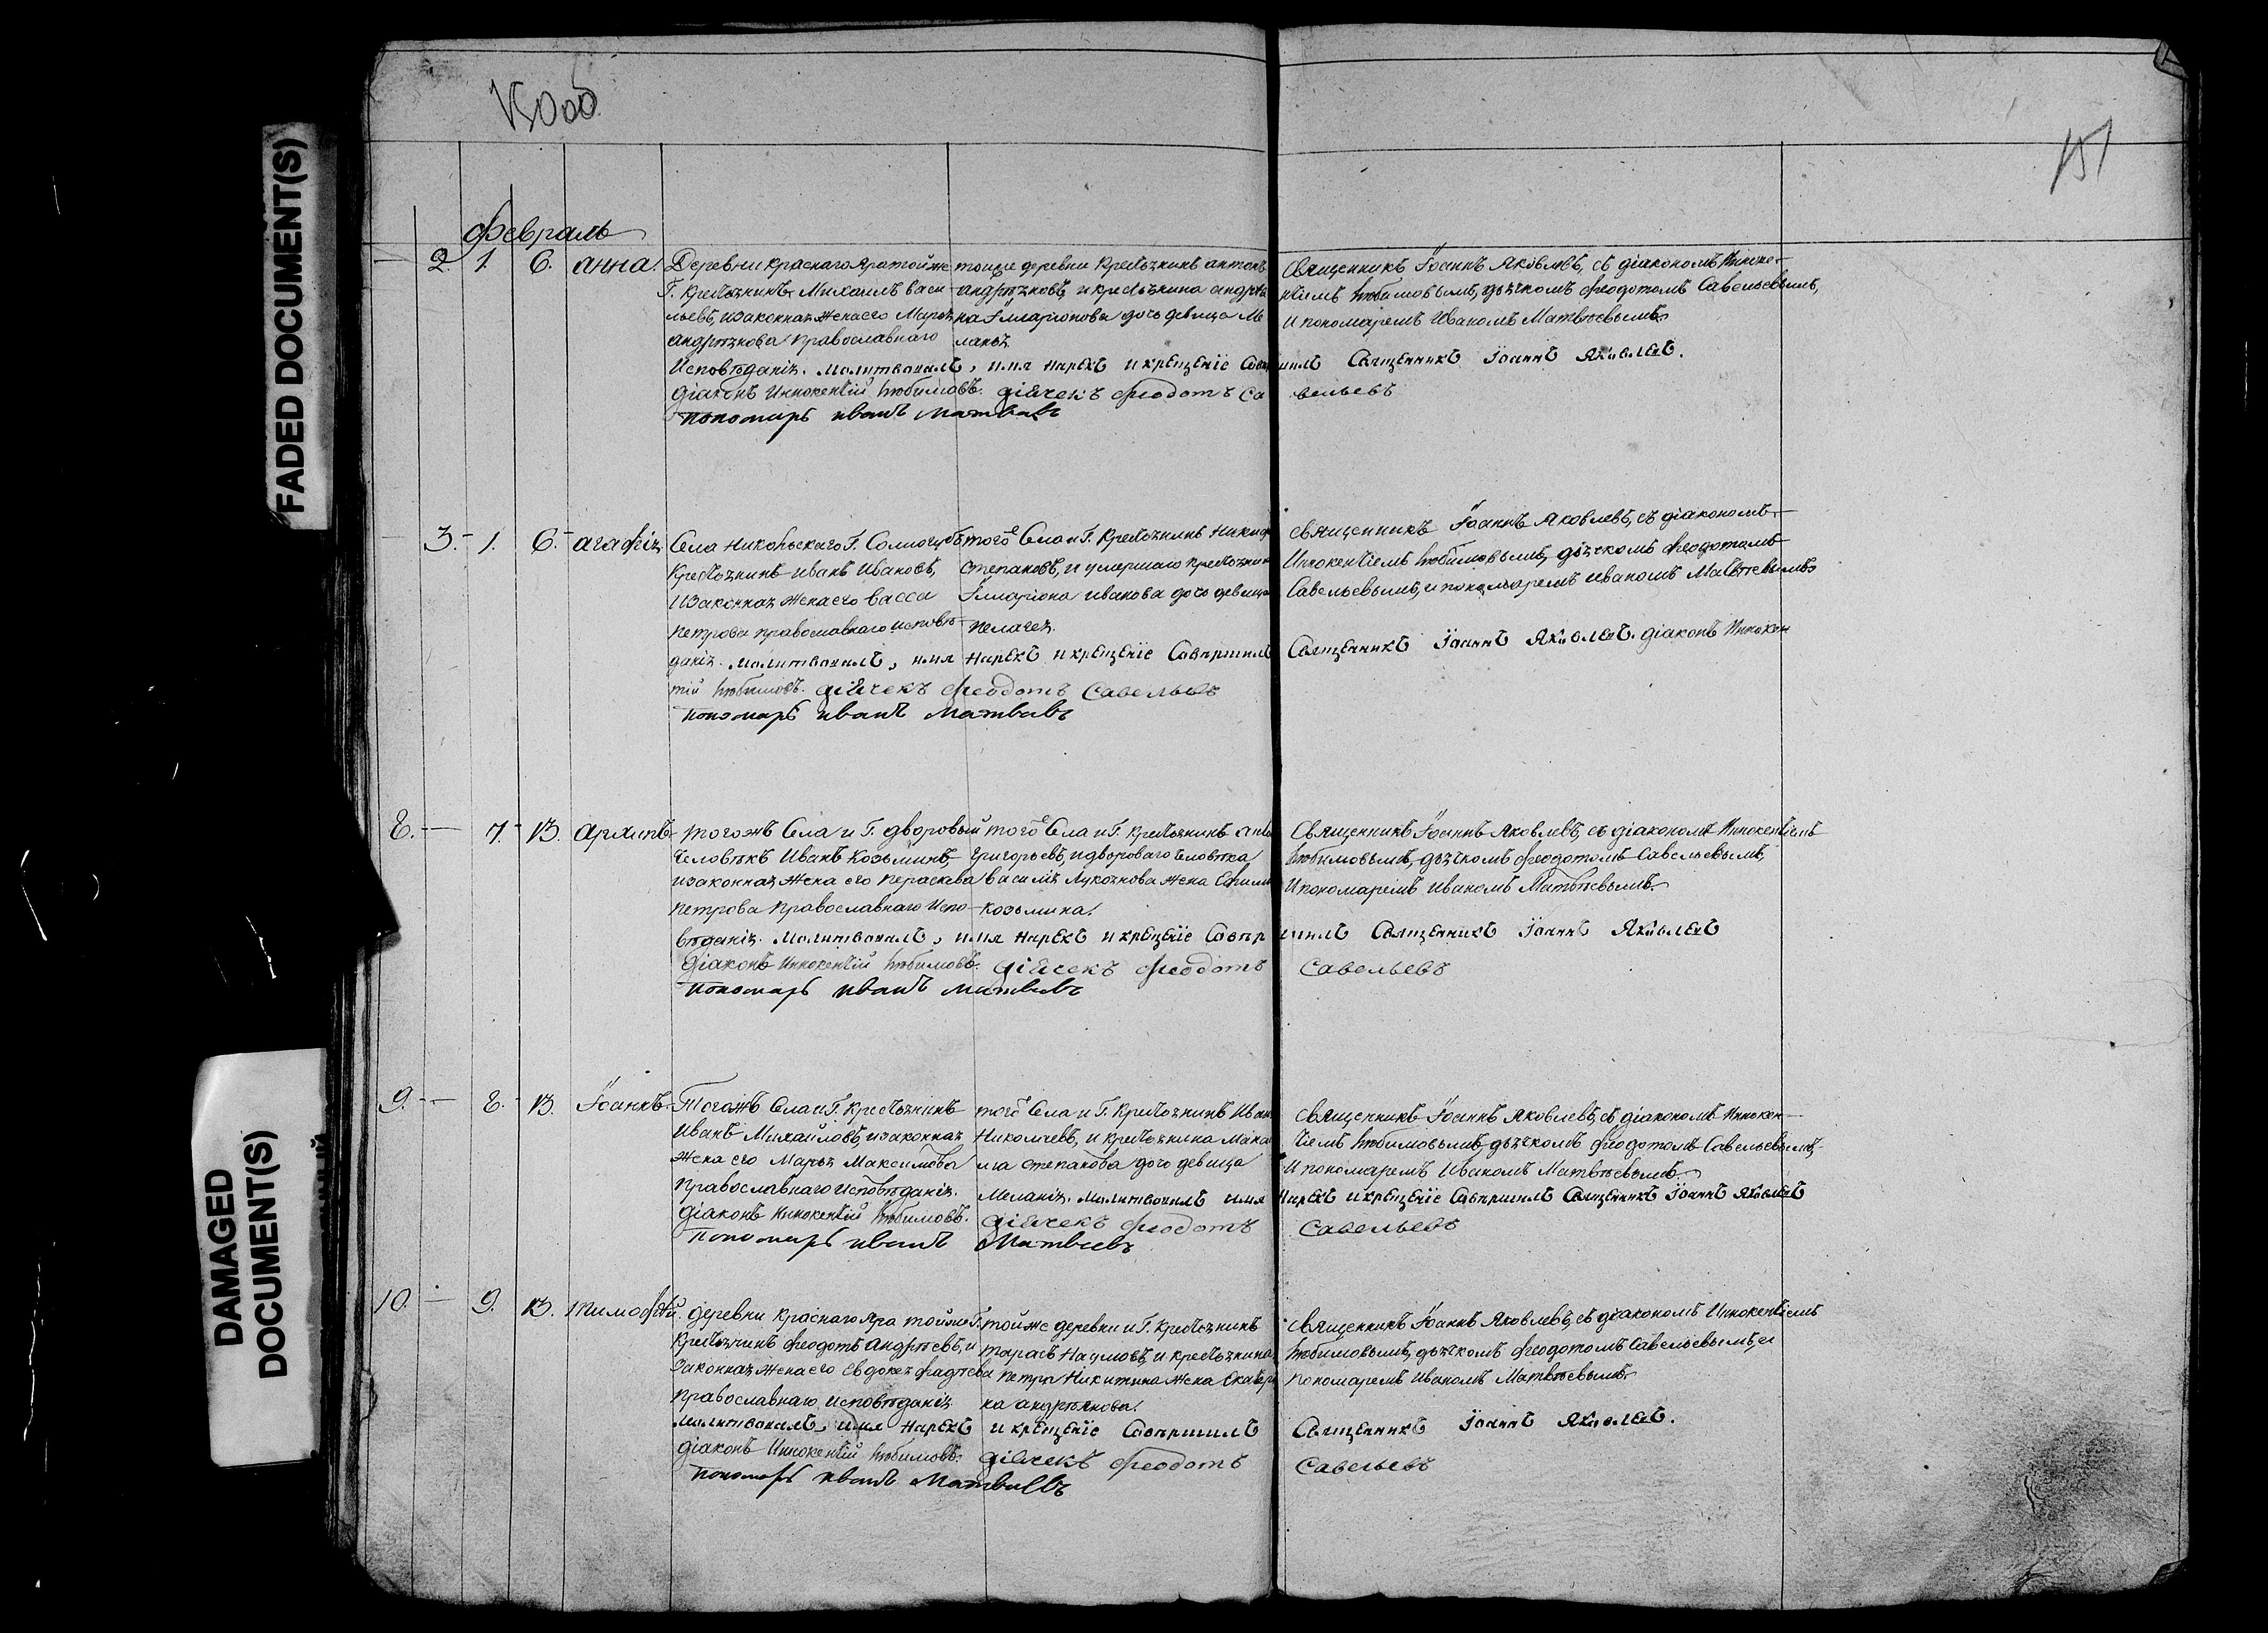 150об
151
FADED DOCUMENT(S)
DAMAGED
DOCUMENT(S)
Февраль
2. 1. 6. анна.
Деревни Краснаго Яра той же
Г. Крестьянинъ Михаилъ Васи-
льевъ, и законная жена его Марья
Андреянова православнаго
Исповѣданія. Молитвовалъ, имя нарекъ и крещеніе совершилъ Священникъ Іоаннъ Яковлевъ.
Діаконъ Иннокентій Любимовъ. дьячекъ Феодотъ Савельевъ
Пономарь Иванъ Матвѣевъ
тоя же деревни Крестьянинъ Антонъ
Андреяновъ, и крестьянина Андрея
на Илларионова дочь девица Ме
ланья.
Священникъ Іоаннъ Яковлевъ, съ діакономъ Инноке-
нтіемъ Любимовымъ, дьячкомъ Феодотомъ Савельевымъ,
и пономаремъ Иваномъ Матвѣевымъ.
3. 1. 6. Агафія
Села Никольскаго Г. Сологуба
Крестьянинъ Иванъ Ивановъ,
и законная жена его Васса
Петрова православнаго исповѣ-
данія. Молитвовалъ, имя нарекъ и крещеніе совершилъ Священникъ Іоаннъ Яковлевъ. діаконъ Иннокен
тій Любимовъ. дьячекъ Феодотъ Савельевъ
Пономарь Иванъ Матвѣевъ
того Села и Г. Крестьянинъ Никиф
Степановъ, и умершаго крестьянин
Иллариона Иванова дочь девица
Пелагея.
Священникъ Іоаннъ Яковлевъ, съ діакономъ
Иннокентіемъ Любимовымъ, дьячкомъ Феодотомъ
Савельевымъ, и пономаремъ Иваномъ Матвѣевымъ
8. 7. 13. Архипъ
того жъ Села и Г. дворовый
человѣкъ Иванъ Козьминъ,
и законная жена его Пераскева
Петрова Православнаго Испо-
вѣданія. Молитвовалъ, имя нарекъ и крещеніе совершилъ Священникъ Іоаннъ Яковлевъ
Діаконъ Иннокентій Любимовъ. дьячекъ Феодотъ Савельевъ
Пономарь Иванъ Матвѣевъ
того Села и Г. крестьянинъ
Григорьевъ, и двороваго человѣка
Василія Лукоянова жена
Козьмина.
Священникъ Іоаннъ Яковлевъ, съ діакономъ Иннокентіемъ
Любимовымъ, дьячкомъ Феодотомъ Савельевымъ,
и пономаремъ Иваномъ Матвѣевымъ.
9. 8. 13. Іоаннъ
Того жъ Села и Г. Крестьянинъ
Иванъ Михайловъ, и законная
жена его Марья Максимова
Православнаго исповѣданія.
діаконъ Иннокентій Любимовъ. дьячекъ Феодотъ Савельевъ
Пономарь Иванъ Матвѣевъ
того Села и Г. Крестьянинъ Иван
Николаевъ, и крестьянина Мака
ма Степанова дочь девица
Меланія. Молитвовалъ имя нарекъ и крещеніе совершилъ Священникъ Іоаннъ Яковлевъ
Священникъ Іоаннъ Яковлевъ, съ діакономъ Инокен-
тіемъ Любимовымъ, дьячкомъ Феодотомъ Савельевымъ,
и пономаремъ Иваномъ Матвѣевымъ.
10. 9. 13. Тимофѣй.
Деревни Краснаго Яра той же Г.
Крестьянинъ Феодотъ Андрѣевъ, и
законная жена его Евдокея Фадѣева
Православнаго исповѣданія
Молитвовалъ, имя нарекъ и крещеніе совершилъ Священникъ Іоаннъ Яковлевъ.
діаконъ Иннокентій Любимовъ. дьячекъ Феодотъ Савельевъ
Пономарь Иванъ Матвѣевъ
той же деревни и Г. Крестьянинъ
Тарасъ Наумовъ, и крестьянина
Петра Никитина жена Екатери
на Андреянова.
Священникъ Іоаннъ Яковлевъ, съ діакономъ Иннокентіемъ
Любимовымъ, дьячкомъ Феодотомъ Савельевымъ, и
пономаремъ Иваномъ Матвѣевымъ.